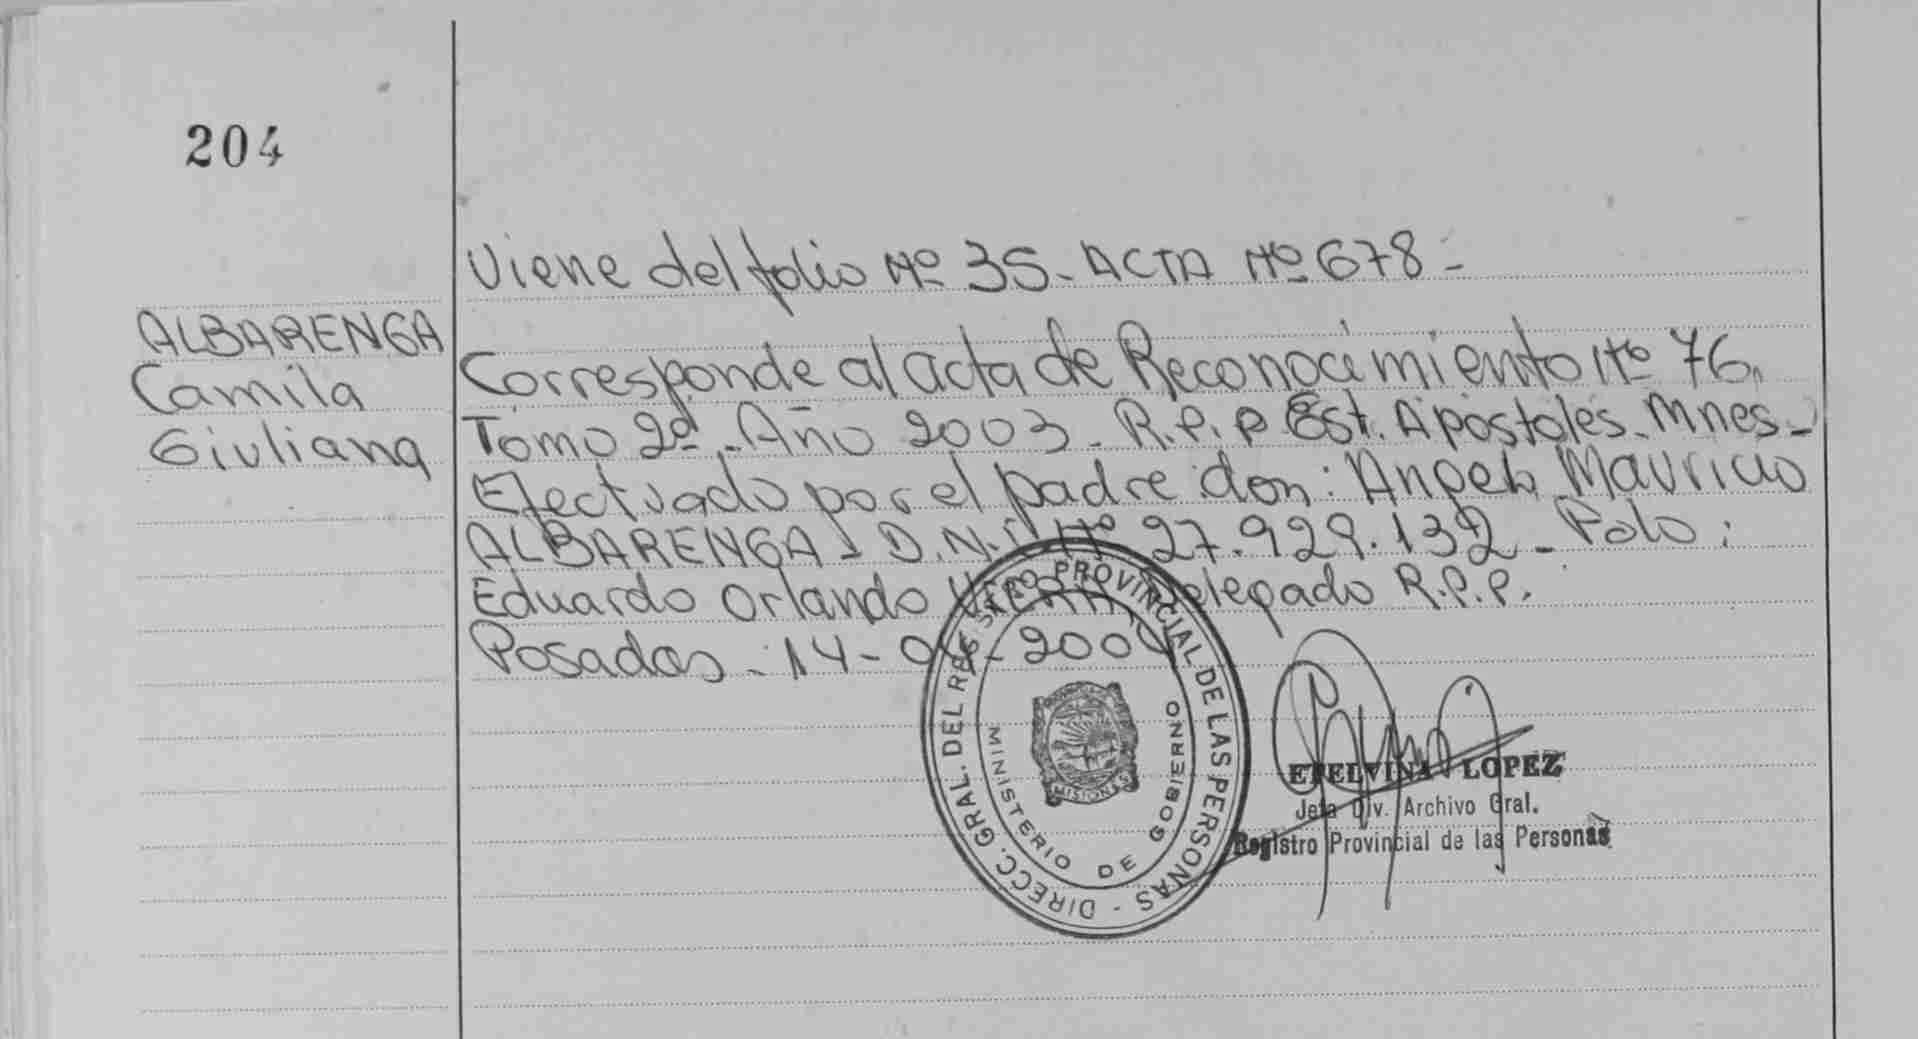 204
Viene del folio Nº 35 - ACTA Nº 678 -
ALBARENGA
Camila
Giuliana
Corresponde al acta de Reconocimiento Nº 76.
Tomo 2º - Año 2003 - R.P.P Est. Apóstoles - Mnes -
Efectuado por el padre don: Angelo Mauricio
ALBARENGA - D.N.I Nº 27.929.132 - Fdo:
Eduardo Orlando Delegado R.P.P.
Posadas - 14-
DIRECC. GRAL. DEL REGISTRO PROVINCIAL DE LAS PERSONAS -
MINISTERIO DE GOBIERNO
MISIONES
ETELVINA LOPEZ
Jefa Div. Archivo Gral.
Registro Provincial de las Personas